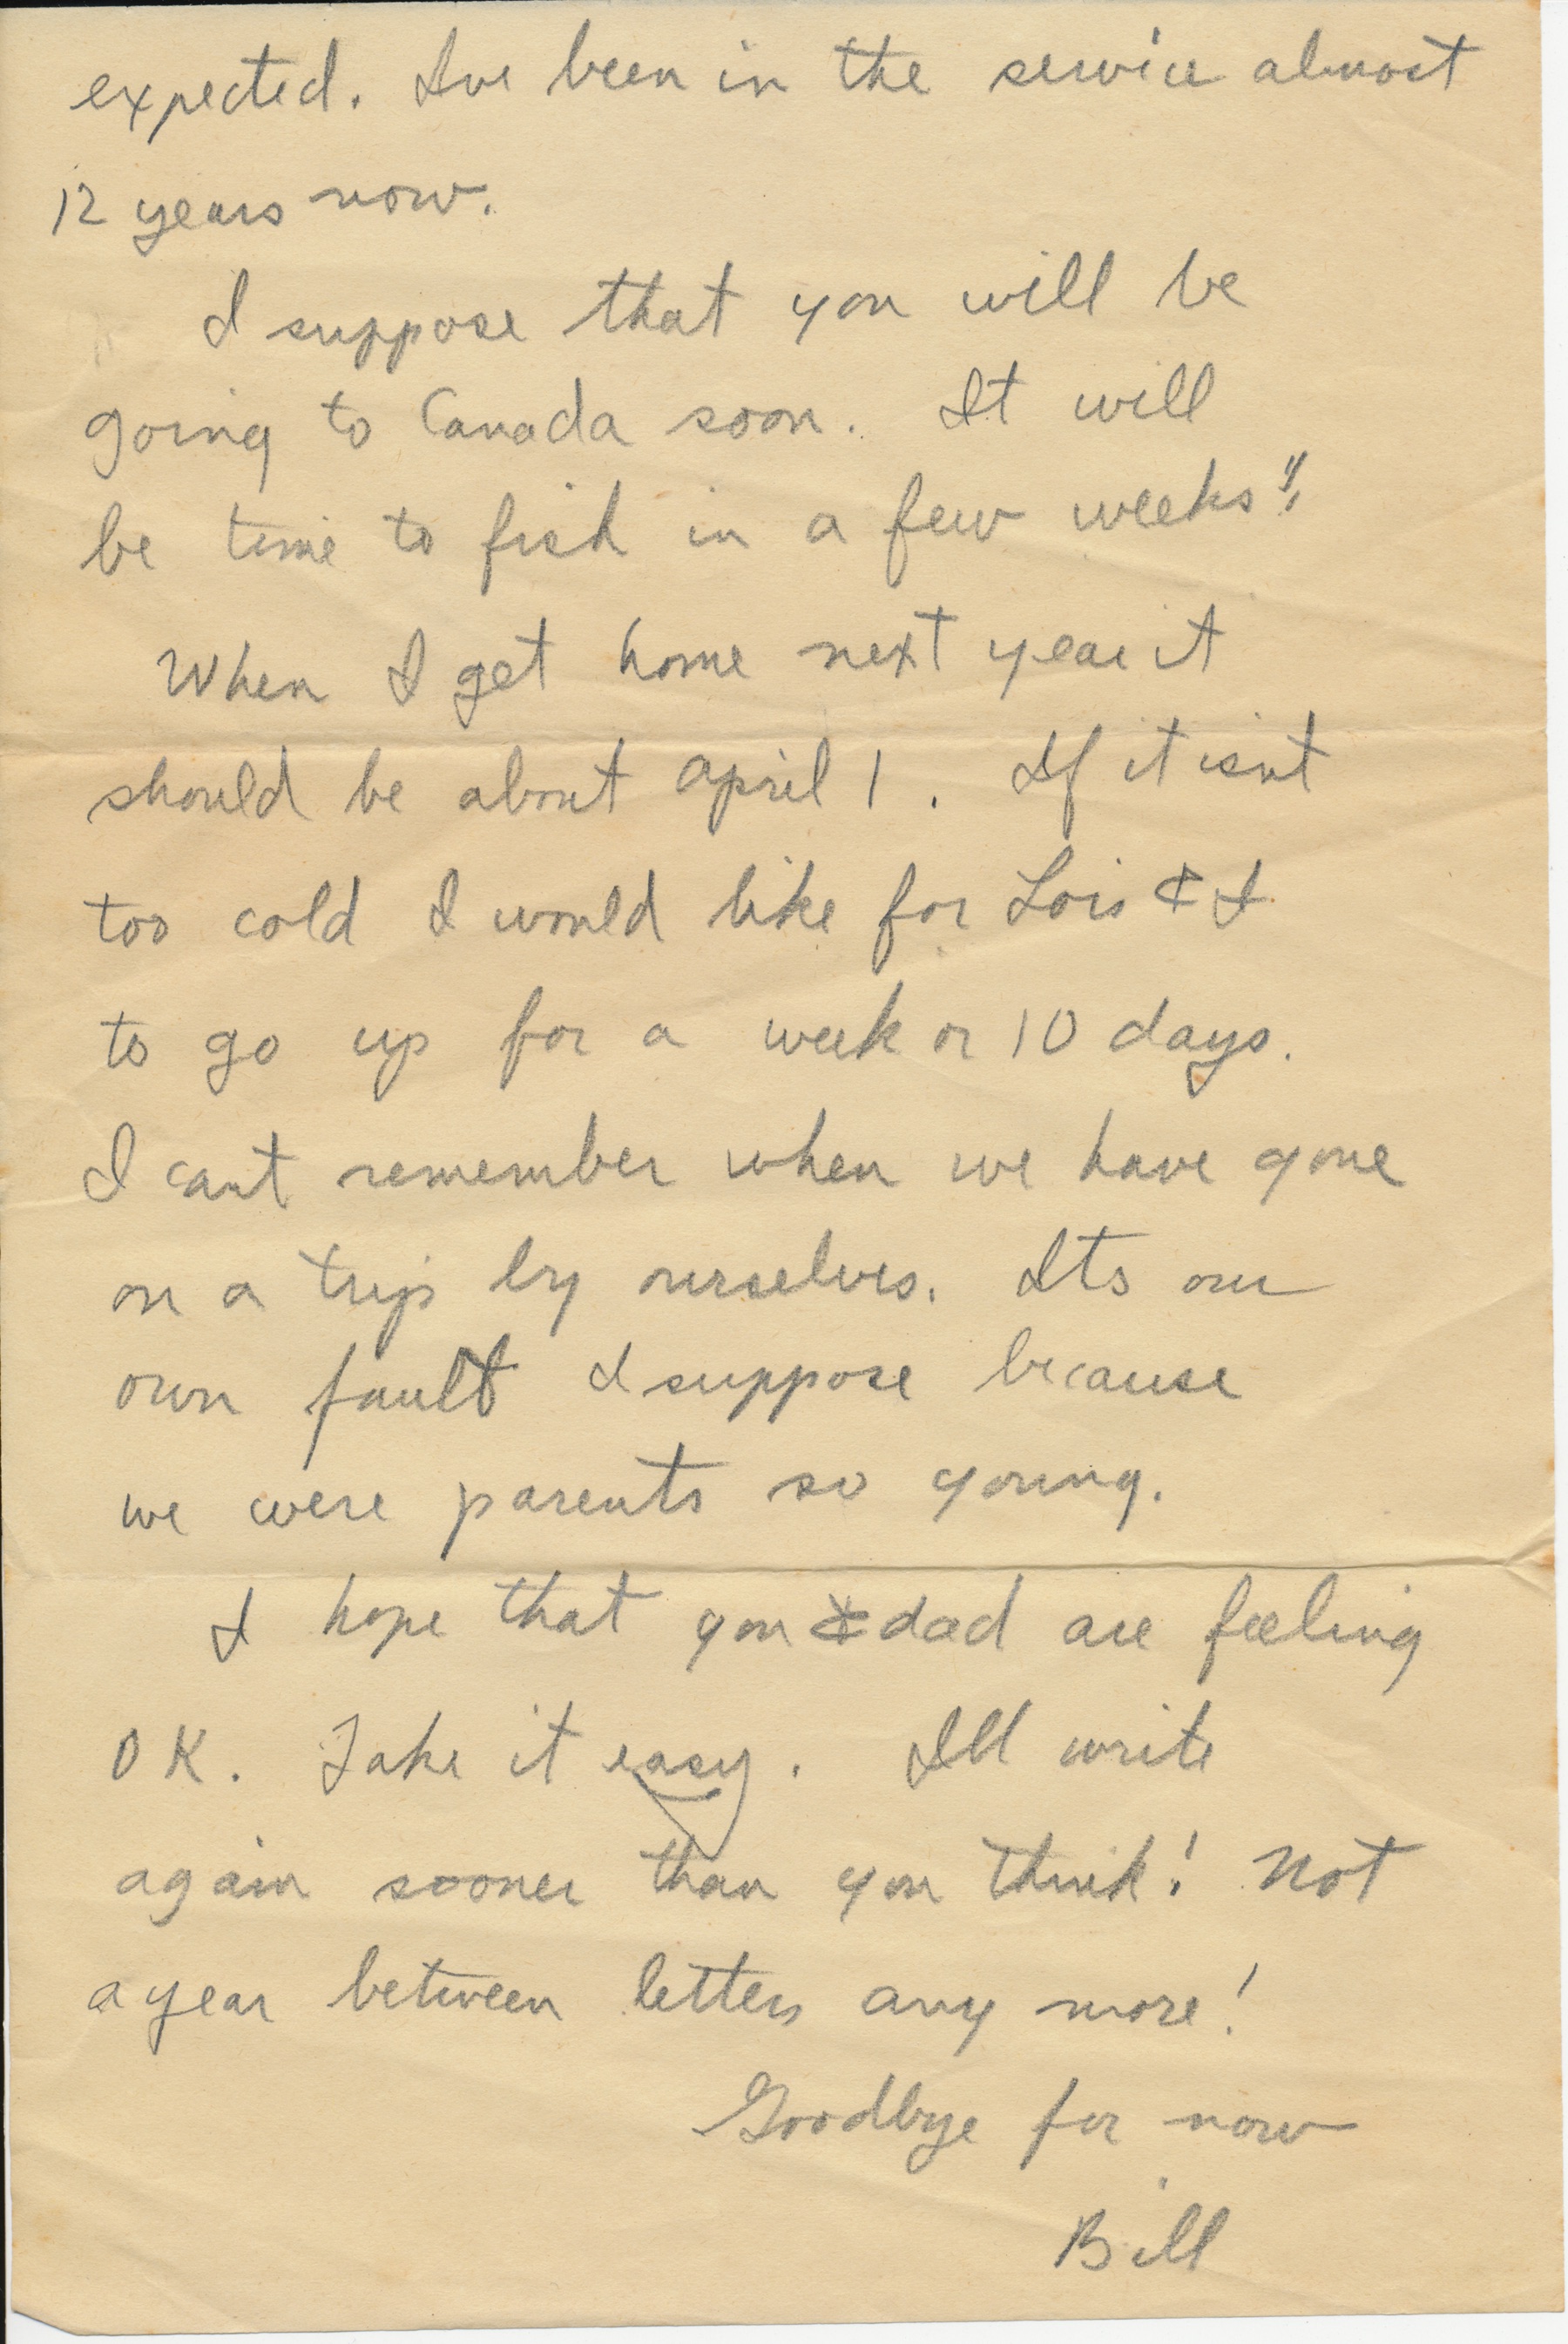 expected. Ive been in the service almost
12 years now.
I suppose that you will be
going to Canada soon. It will
be time to fish in a few weeks!!
When I get home next year it
should be about april 1. If it isnt
too cold I would like for Lois & I
to go up for a week or 10 days.
I cant remember when we have gone
on a trip by ourselves. Its our
own fault I suppose because
we were parents so young.
I hope that you & dad are feeling
OK. Take it easy. Ill write
again sooner than you think! Not
a year between letters any more!
Goodbye for now
Bill